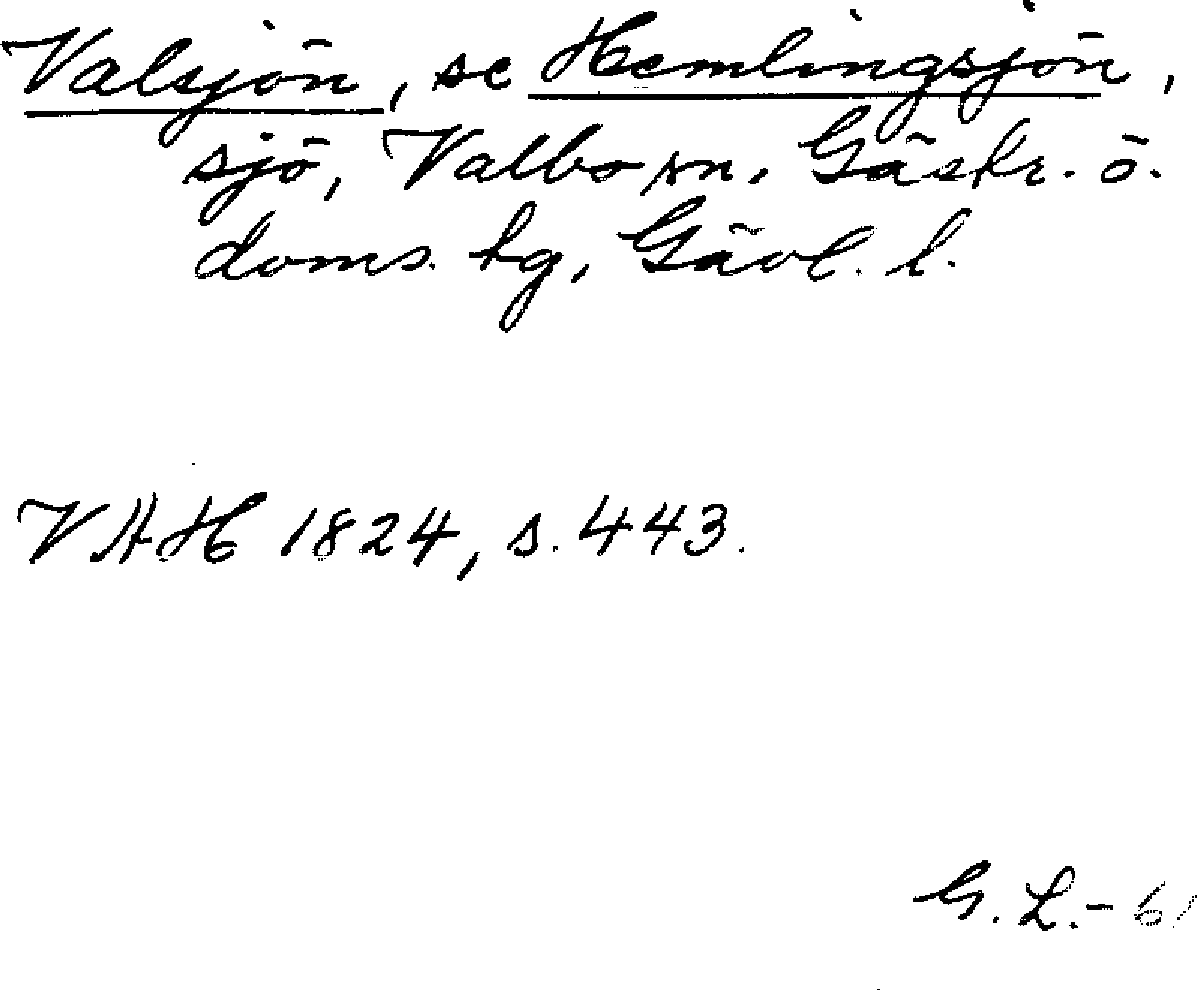 Valsjön, se Hemlingsjön,
sjö, Valbo sn. Gästr. ö.
doms. hg, Gävl. l.
VAH 1824, s. 443.
G. L. - 61